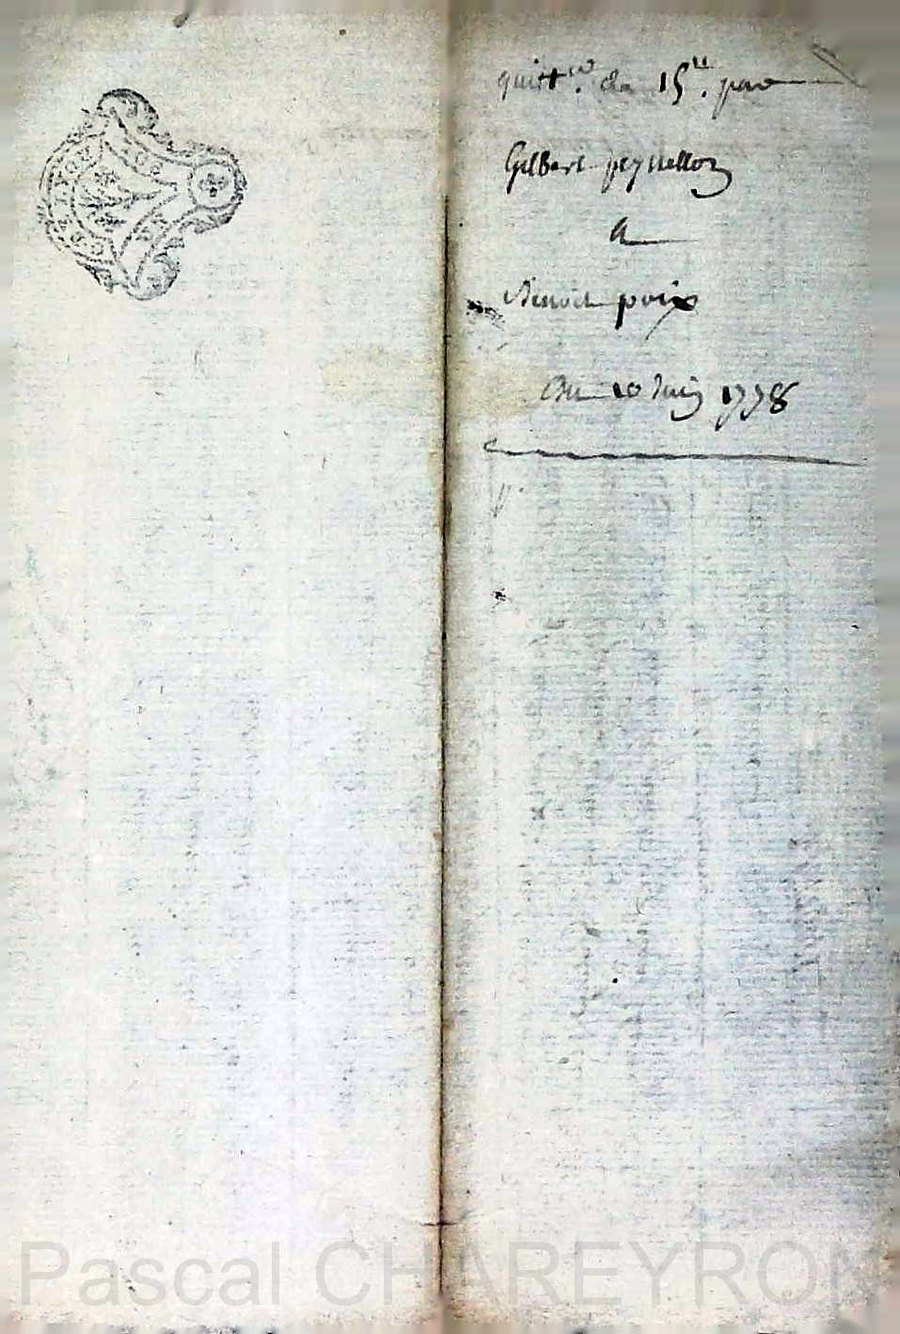 quittce. de 15lt. par
Gilbert peynellon
a
Benoit poix
Du 10 Juin 1778
Pascal CHAREYRON